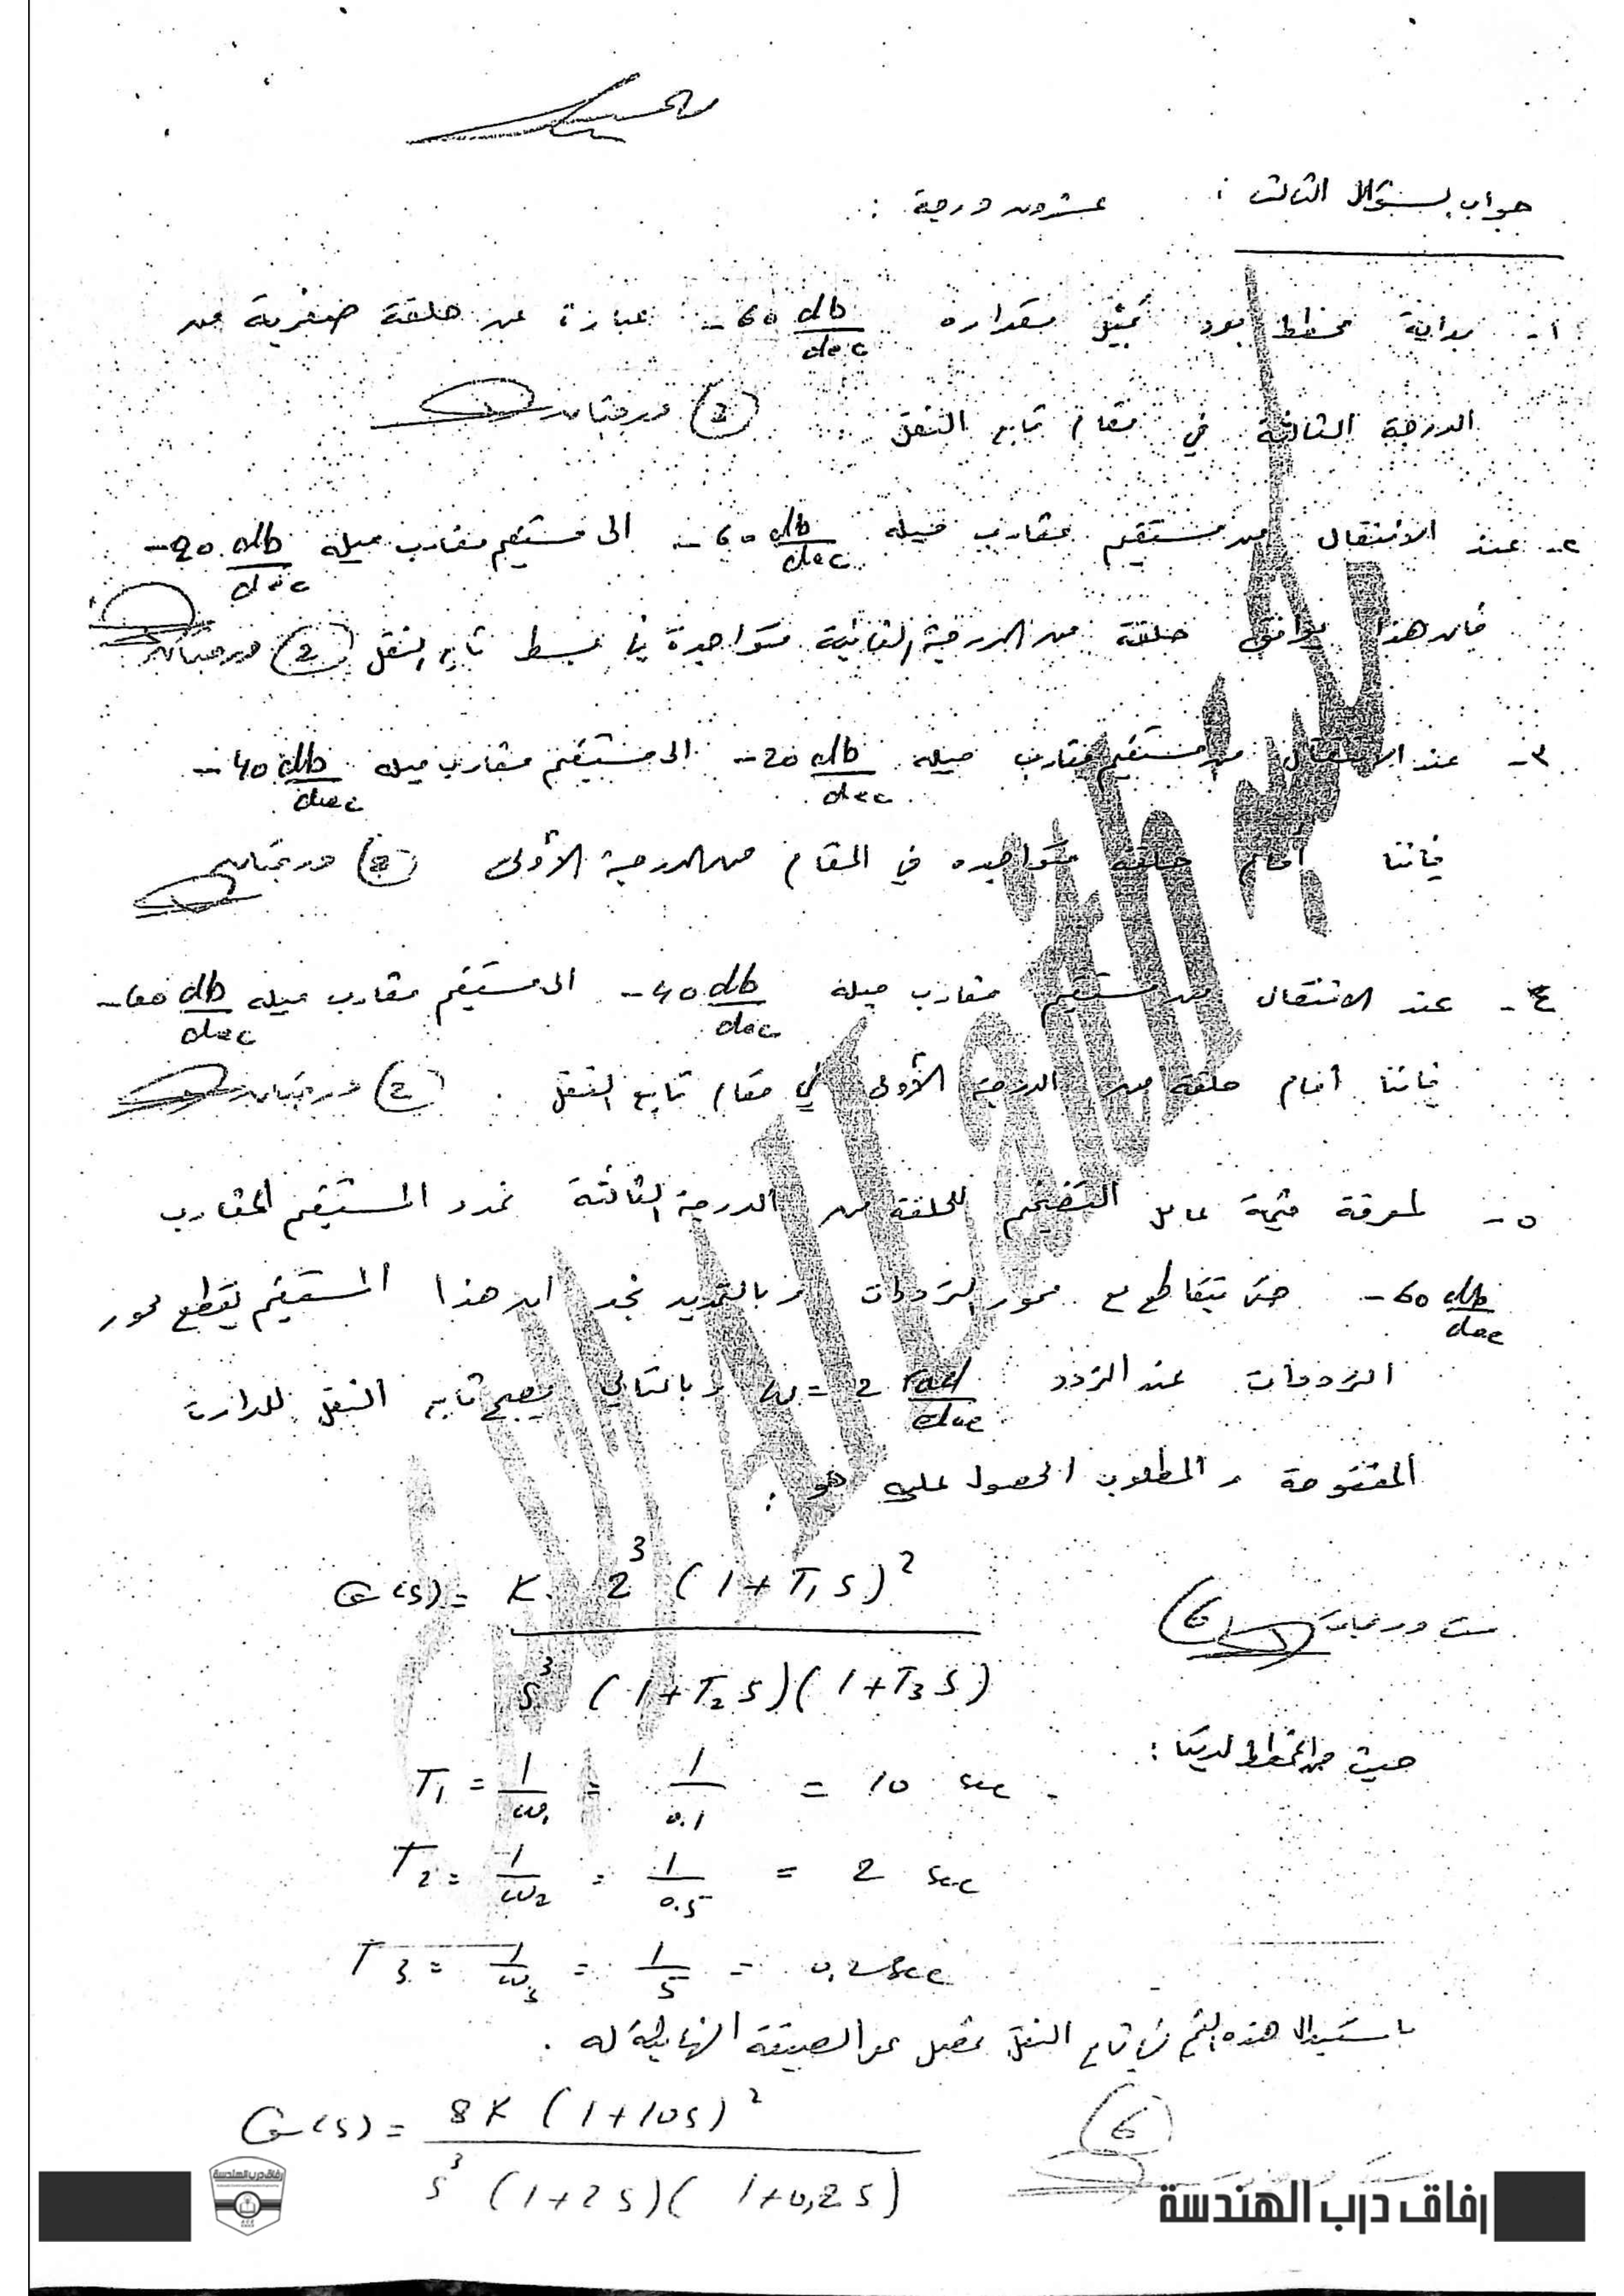 جواب السؤال الثالث : عشرون درجة :
١- بداية مخطط بود بميل مقداره -60 db/dec عبارة عن حلقة صفرية من
الدرجة الثالثة في مقام تابع النقل (2) درجتان
٢- عند الانتقال من مستقيم مقارب ميله -60 db/dec الى مستقيم مقارب ميله -20 db/dec
فان هذا يوافق حلقة من الدرجة الثانية متواجدة في بسط تابع النقل (2) درجتان
٣- عند الانتقال من مستقيم مقارب ميله -20 db/dec الى مستقيم مقارب ميله -40 db/dec
فاننا أمام حلقة متواجده في المقام من الدرجة الأولى (2) درجتان
٤- عند الانتقال من مستقيم مقارب ميله -40 db/dec الى مستقيم مقارب ميله -60 db/dec
فاننا أمام حلقة من الدرجة الأولى في مقام تابع النقل . (2) درجتان
٥- لمعرفة قيمة عامل التضخيم للحلقة من الدرجة الثالثة نمدد المستقيم المقارب
-60 db/dec حتى يتقاطع مع محور الترددات و بالتمديد نجد ان هذا المستقيم يقطع محور
الترددات عند التردد ω = 2 rad/dec و بالتالي يصبح تابع النقل للدارة
المفتوحة و المطلوب الحصول عليه هو :
G(s) = K. 2^3 (1+T1 s)^2 / s^3 (1+T2 s)(1+T3 s) ست درجات (6)
حيث من المخطط لدينا :
T1 = 1/ω1 = 1/0.1 = 10 sec
T2 = 1/ω2 = 1/0.5 = 2 sec
T3 = 1/ω3 = 1/5 = 0,2 sec
باستبدال هذه القيم في تابع النقل نحصل على الصيغة النهائية له .
G(s) = 8K (1+10s)^2 / s^3 (1+2s)(1+0,2s) (6)
رفاق درب الهندسة